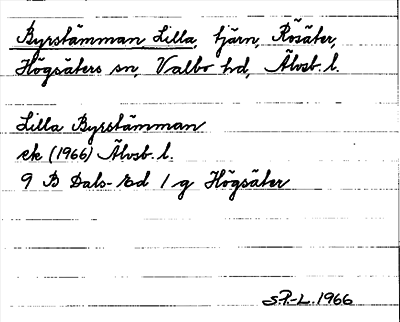 Byrstämman Lilla, tjärn, Rösäter,
Högsäters sn, Valbo hd, Älvsb. l.
Lilla Byrstämman
ek (1966) Älvsb. l.
9 B Dals-Ed 1 g Högsäter
S.P.-L. 1966